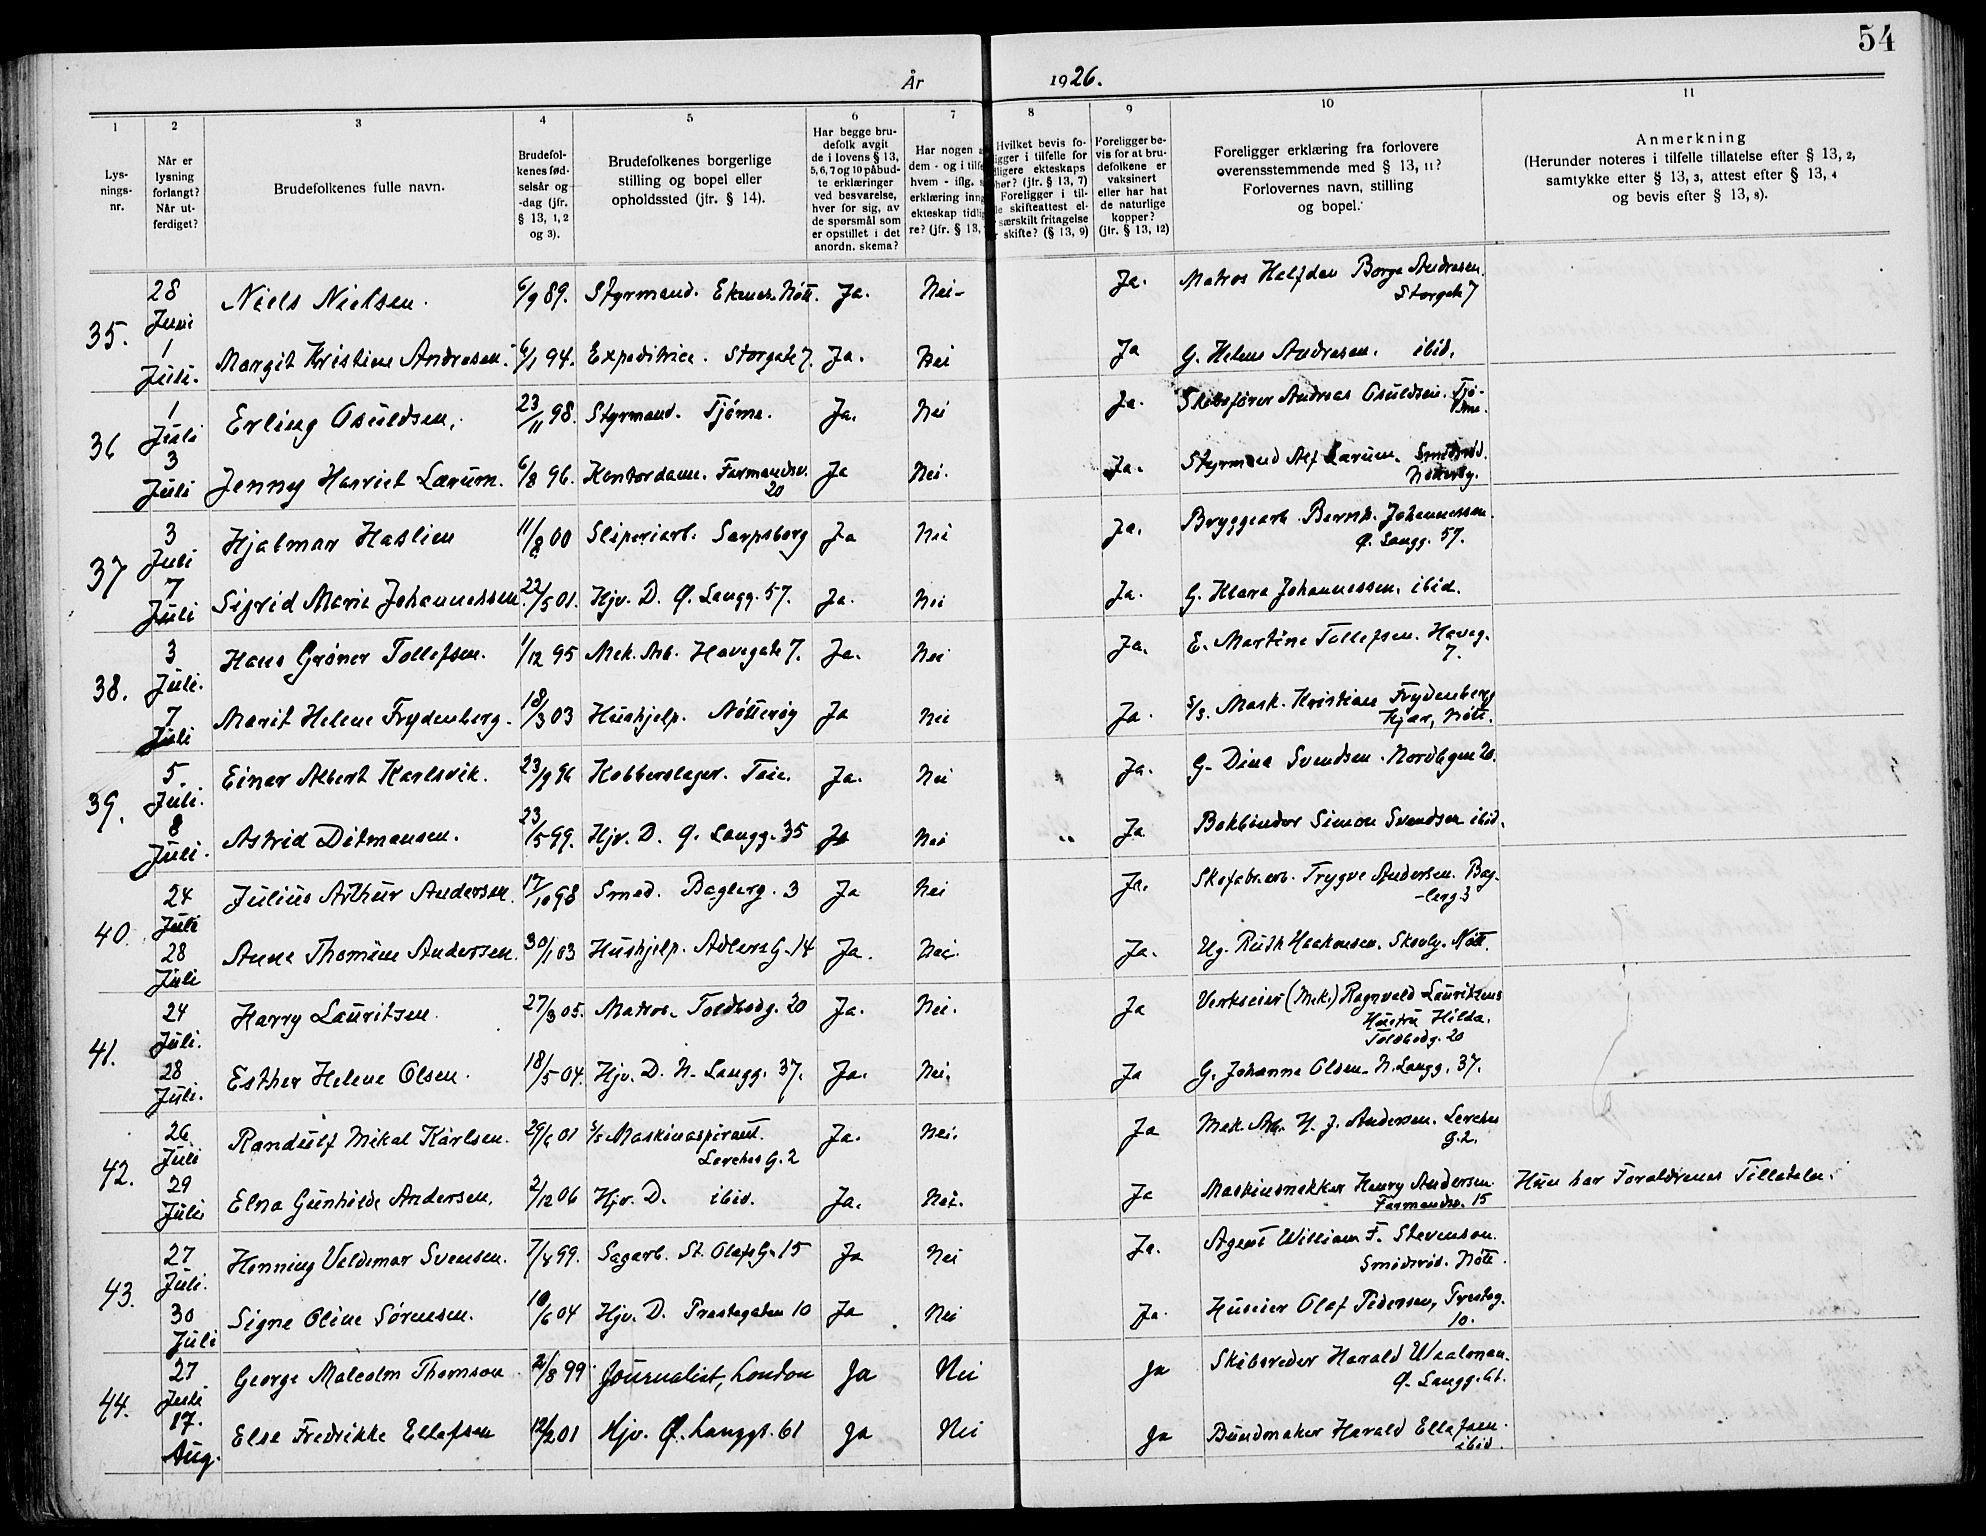 54
År 1926.
1 2 3 4 5 6 7 8 9 10 11
Lys-
nings-
nr.
Når er
lysning
forlangt?
Når ut-
ferdiget?
Brudefolkenes fulle navn.
Brudefol-
kenes fød-
selsår og
-dag (jfr.
§ 13, 1, 2
og 3).
Brudefolkenes borgerlige
stilling og bopel eller
opholdssted (jfr. § 14).
Har begge bru-
defolk avgit
de i lovens § 13,
5, 6, 7 og 10 påbud-
te erklæringer
ved besvarelse,
hver for sig, av
de spørsmål som
er opstillet i det
anordn. skema?
Har nogen a
dem - og i tilfe
hvem - iflg. s
erklæring inng
ekteskap tidlig
re? (jfr. § 13,
Hvilket bevis fo-
igger i tilfelle for
dligere ekteskaps
hør? (jfr. § 13, 7)
Foreligger i til-
le skifteattest el-
særskilt fritagelse
skifte? (§ 13, 9)
Foreligger be-
vis for at bru-
defolkene er
vaksinert
eller har hat
de naturlige
kopper?
(jfr. § 13, 12)
Foreligger erklæring fra forlovere
overensstemmende med § 13, 11?
Forlovernes navn, stilling
og bopel.
Anmerkning
(Herunder noteres i tilfelle tillatelse efter § 13, 2,
samtykke etter § 13, 3, attest efter § 13, 4
og bevis efter § 13, 8).
35. 28 Juni Niels Nielsen. 6/9 89. Styrmand. Ekenes. Nøtt. Ja. Nei- Ja. Matros Halfdan Borge Andresen.
Storgate 7
1 Juli. Margit Kristine Andresen. 6/1 94. Expeditrice. Storgate 7. Ja. Nei Ja G. Helene Andresen. ibid.
36 1 Juli Erling Osuldsen. 23/11 98. Styrmand. Tjøme. Ja. Nei Ja. Skibsfører Andreas Osuldsen. Tjø-
me.
3 Juli Jenny Harriet Lærum. 6/8 96. Kontordame. Farmandsv.
20 Ja Nei. Ja. Styrmand Alf Lærum. Smidsrød.
Nøtterøy.
37 3 Juli Hjalmar Haslien 11/8 00 Sliperiarb. Sarpsborg Ja Nei Ja. Bryggearb. Bernh. Johannessen.
Ø. Langg. 57.
7 Juli Sigrid Marie Johannessen 22/5 01. Hjv. D. Ø. Langg. 57. Ja. Nei Ja. G. Klara Johannessen. ibid.
38. 3 Juli. Hans Grøner Tollefsen. 1/12 95 Mek. Arb. Havegate 7. Ja. Nei Ja. E. Martine Tollefsen. Haveg.
7.
7 Juli Marit Helene Frydenberg. 18/3 03 Hushjelp. Nøtterøy Ja Nei Ja. s/s. Mask. Kristian Frydenberg
Kjær, Nøtt.
39. 5. Juli. Einar Albert Karlsvik. 23/9 96 Kobberslager. Teie. Ja. Nei Ja. G. Dina Svendsen. Nordbyen 20.
8 Juli. Astrid Ditmansen. 23/5 99. Hjv. D. Ø. Langg. 35 Ja Nei Ja Bokbinder Simon Svendsen ibid.
40. 24 Juli Julius Arthur Andersen. 17/10 98 Smed. Baglerg. 3 Ja Nei Ja. Skofabr.arb. Trygve Andersen. Bag-
lerg 3
28 Juli Anna Thomine Andersen. 30/1 03 Hushjelp. Adlers G. 14 Ja. Nei. Ja. Ug. Ruth Haakonsen. Skovly. Nøtt.
41. 24 Juli. Harry Lauritsen. 27/3 05. Matros. Toldbodg. 20 Ja. Nei. Ja Verkseier (Mek.) Ragnvald Lauritsens
Hustru Hilda.
Toldbodg. 20
28 Juli. Esther Helene Olsen. 18/5 04. Hjv. D. N. Langg. 37. Ja. Nei. Ja G. Johanne Olsen. N. Langg. 37.
42. 26 Juli Randulf Mikal Karlsen. 29/6 01 s/s Maskinaspirant.
Lerches G. 2 Ja. Nei. Ja Mek. Arb. H. J. Andersen. Lerches
G. 2.
29 Juli Elna Gunhilde Andersen. 2/12 06 Hjv. D. ibid. Ja. Nei. Ja Maskinsnekker Henry Andersen
Farmandsv. 15 Hun har Forældrenes Tilladelse.
43. 27 Juli. Henning Valdemar Svensen. 7/8 99. Sagarb. St. Olafs G. 15 Ja Nei Ja. Agent William F. Stevenson.
Smidsrød. Nøtt.
30 Juli Signe Oline Sørensen. 10/6 04 Hjv. D. Prestegaten 10 Ja Nei Ja. Huseier Olaf Pedersen, Presteg.
10.
44. 27 Juli George Malcolm Thomson 2/8 99 Journalist, London Ja Nei Ja Skibsreder Harald Waalman.
Ø. Langg. 61.
17. Aug. Else Fredrikke Ellefsen 12/2 01 Hjv. Ø. Langgt. 61 Ja Nei Ja Bundmaker Harald Ellefsen.
ibid.